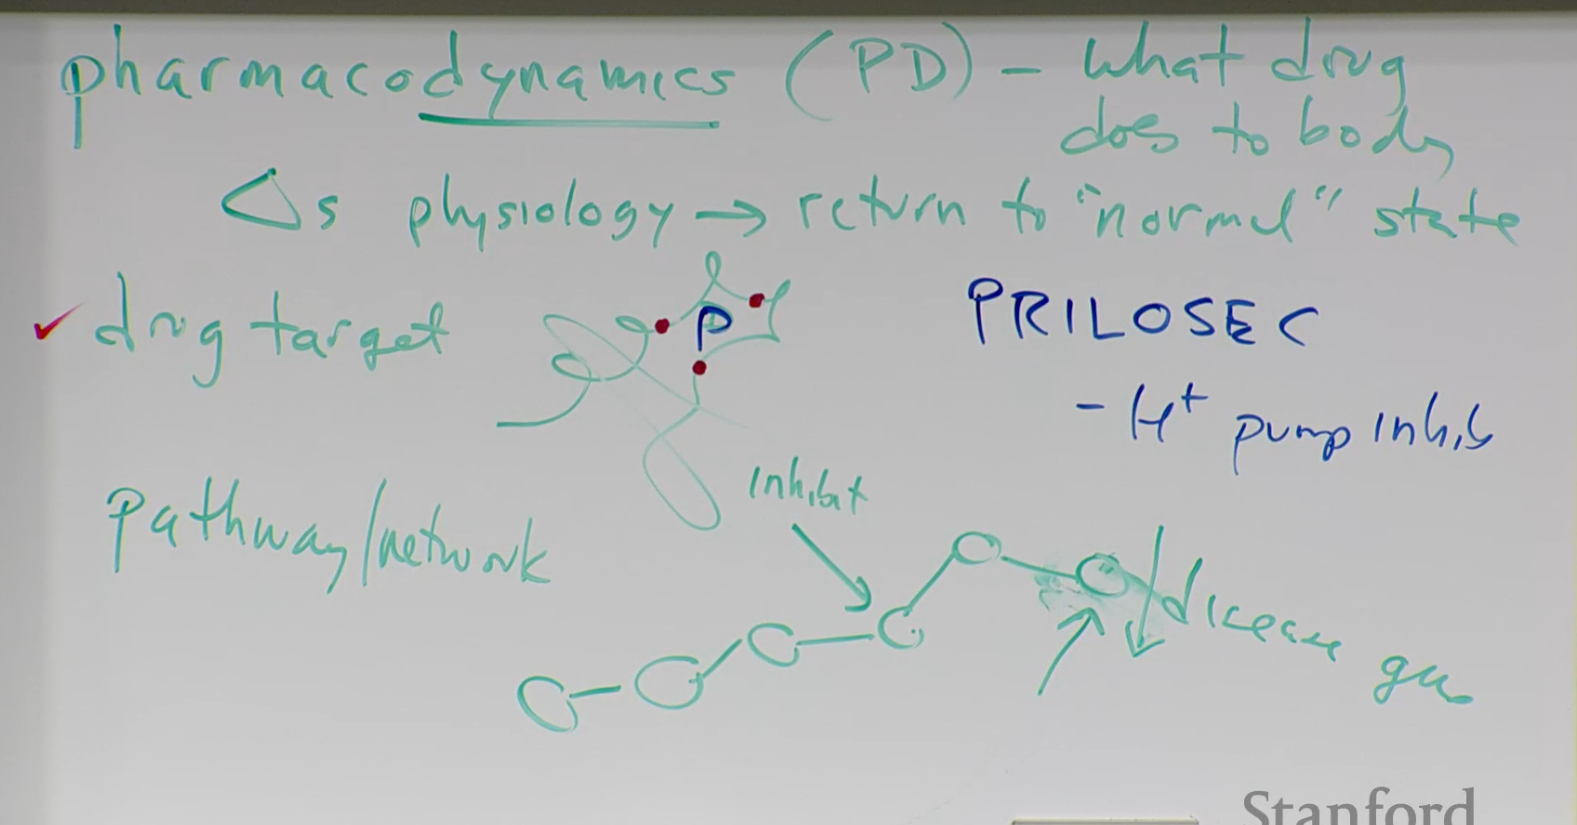 pharmacodynamics (PD) - what drug
does to body
Δs physiology → return to "normal" state
✓ drug target
P
PRILOSEC
- H⁺ pump inhib
pathway/network
inhibit
disease gene
Stanford